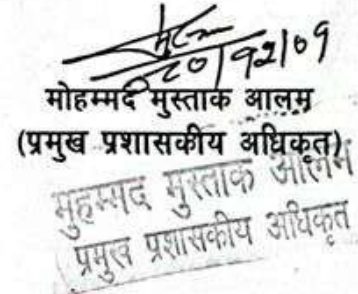 20/12/09
मोहम्मद मुस्ताक आलम
(प्रमुख प्रशासकीय अधिकृत)
मुहम्मद मुस्ताक आलम
प्रमुख प्रशासकीय अधिकृत